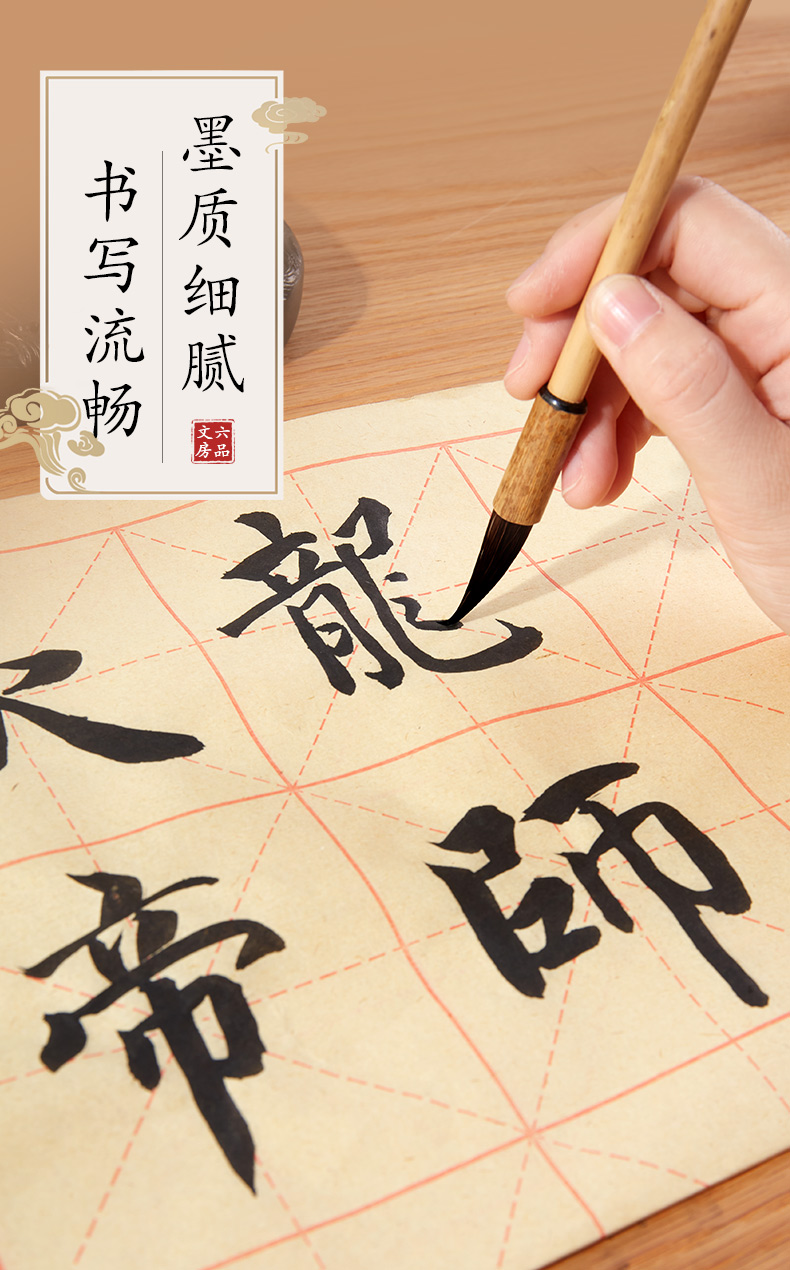 墨质细腻
书写流畅
六品
文房
龍
師
帝